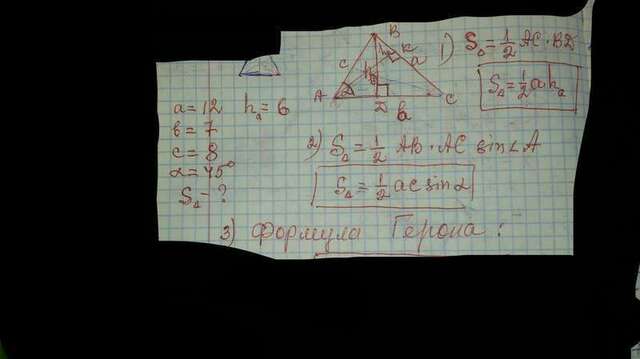 B
K
C a
h_b
A D C
b
1) S_Δ = 1/2 AC · BD
S_Δ = 1/2 a h_a
a = 12 h_a = 6
b = 7
c = 8
α = 45°
S_Δ = ?
2) S_Δ = 1/2 AB · AC sin∠A
S_Δ = 1/2 ac sinα
3) Формула Герона :